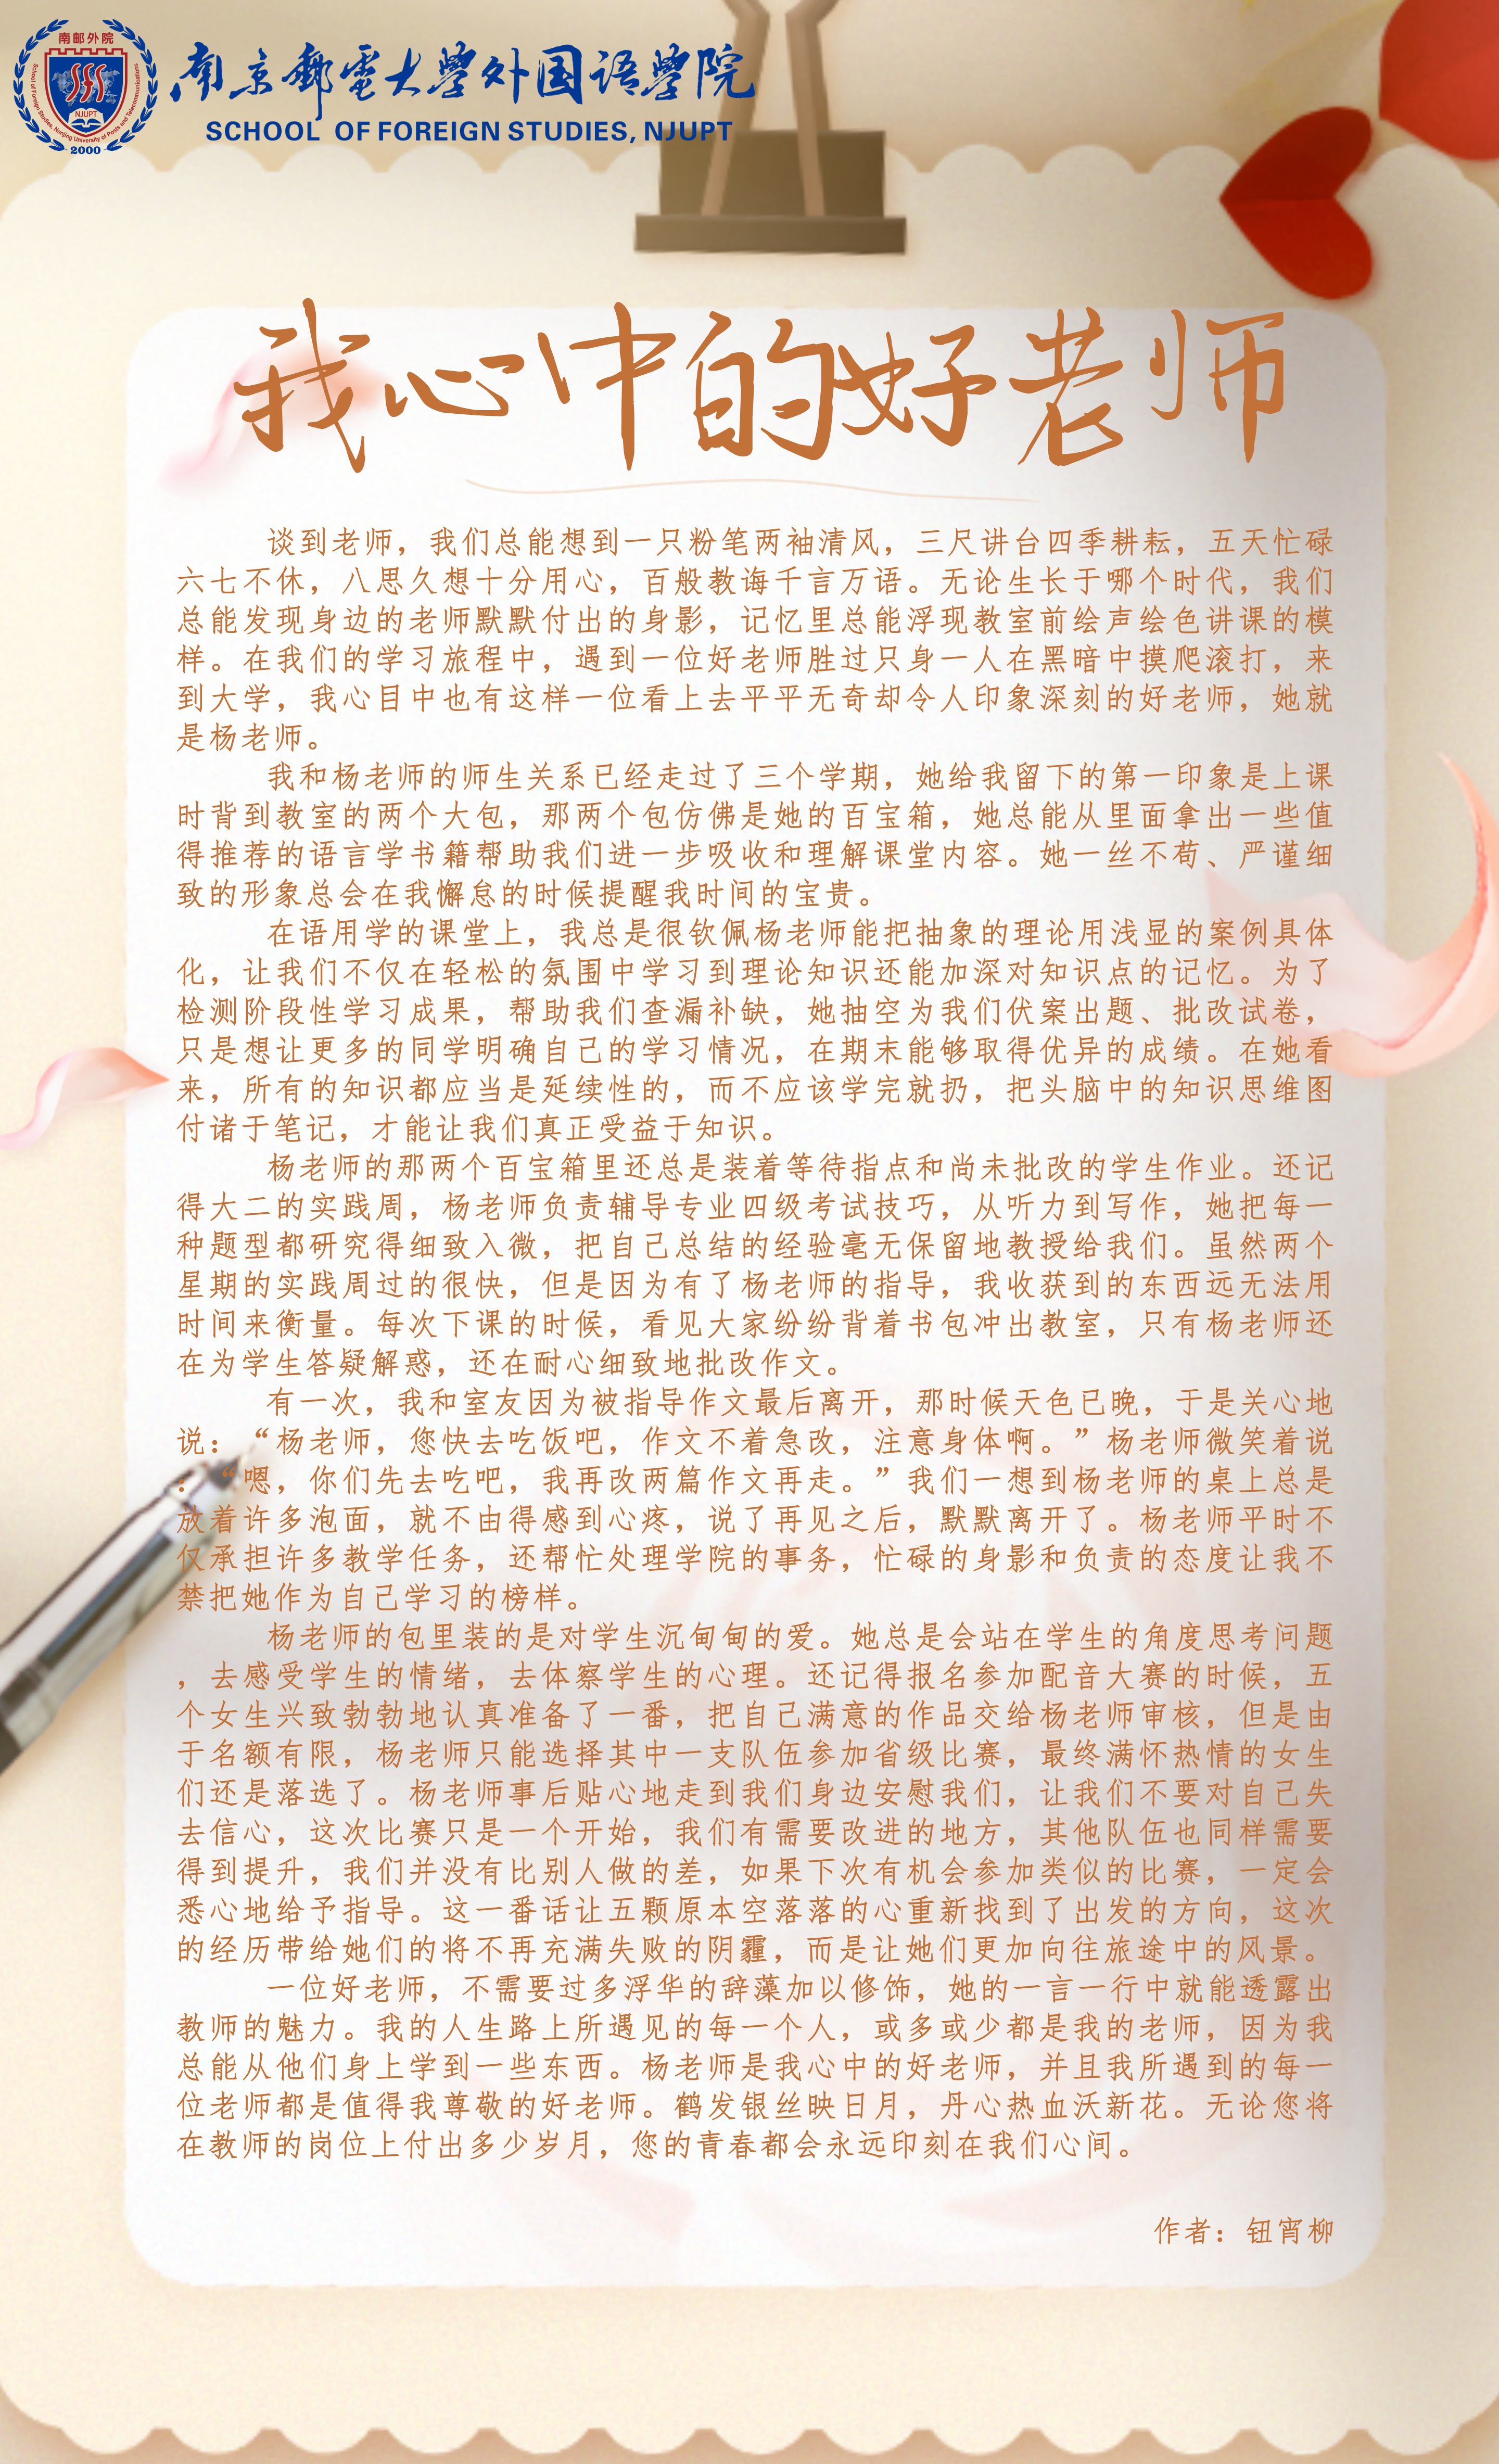 南邮外院
School of Foreign Studies, Nanjing University of Posts and Telecommunications
NJUPT
2000
南京郵電大學外国语學院
SCHOOL OF FOREIGN STUDIES, NJUPT
我心中的好老师
谈到老师，我们总能想到一只粉笔两袖清风，三尺讲台四季耕耘，五天忙碌
六七不休，八思久想十分用心，百般教诲千言万语。无论生长于哪个时代，我们
总能发现身边的老师默默付出的身影，记忆里总能浮现教室前绘声绘色讲课的模
样。在我们的学习旅程中，遇到一位好老师胜过只身一人在黑暗中摸爬滚打，来
到大学，我心目中也有这样一位看上去平平无奇却令人印象深刻的好老师，她就
是杨老师。
我和杨老师的师生关系已经走过了三个学期，她给我留下的第一印象是上课
时背到教室的两个大包，那两个包仿佛是她的百宝箱，她总能从里面拿出一些值
得推荐的语言学书籍帮助我们进一步吸收和理解课堂内容。她一丝不苟、严谨细
致的形象总会在我懈怠的时候提醒我时间的宝贵。
在语用学的课堂上，我总是很钦佩杨老师能把抽象的理论用浅显的案例具体
化，让我们不仅在轻松的氛围中学习到理论知识还能加深对知识点的记忆。为了
检测阶段性学习成果，帮助我们查漏补缺，她抽空为我们伏案出题、批改试卷，
只是想让更多的同学明确自己的学习情况，在期末能够取得优异的成绩。在她看
来，所有的知识都应当是延续性的，而不应该学完就扔，把头脑中的知识思维图
付诸于笔记，才能让我们真正受益于知识。
杨老师的那两个百宝箱里还总是装着等待指点和尚未批改的学生作业。还记
得大二的实践周，杨老师负责辅导专业四级考试技巧，从听力到写作，她把每一
种题型都研究得细致入微，把自己总结的经验毫无保留地教授给我们。虽然两个
星期的实践周过的很快，但是因为有了杨老师的指导，我收获到的东西远无法用
时间来衡量。每次下课的时候，看见大家纷纷背着书包冲出教室，只有杨老师还
在为学生答疑解惑，还在耐心细致地批改作文。
有一次，我和室友因为被指导作文最后离开，那时候天色已晚，于是关心地
说：“杨老师，您快去吃饭吧，作文不着急改，注意身体啊。”杨老师微笑着说
：“嗯，你们先去吃吧，我再改两篇作文再走。”我们一想到杨老师的桌上总是
放着许多泡面，就不由得感到心疼，说了再见之后，默默离开了。杨老师平时不
仅承担许多教学任务，还帮忙处理学院的事务，忙碌的身影和负责的态度让我不
禁把她作为自己学习的榜样。
杨老师的包里装的是对学生沉甸甸的爱。她总是会站在学生的角度思考问题
，去感受学生的情绪，去体察学生的心理。还记得报名参加配音大赛的时候，五
个女生兴致勃勃地认真准备了一番，把自己满意的作品交给杨老师审核，但是由
于名额有限，杨老师只能选择其中一支队伍参加省级比赛，最终满怀热情的女生
们还是落选了。杨老师事后贴心地走到我们身边安慰我们，让我们不要对自己失
去信心，这次比赛只是一个开始，我们有需要改进的地方，其他队伍也同样需要
得到提升，我们并没有比别人做的差，如果下次有机会参加类似的比赛，一定会
悉心地给予指导。这一番话让五颗原本空落落的心重新找到了出发的方向，这次
的经历带给她们的将不再充满失败的阴霾，而是让她们更加向往旅途中的风景。
一位好老师，不需要过多浮华的辞藻加以修饰，她的一言一行中就能透露出
教师的魅力。我的人生路上所遇见的每一个人，或多或少都是我的老师，因为我
总能从他们身上学到一些东西。杨老师是我心中的好老师，并且我所遇到的每一
位老师都是值得我尊敬的好老师。鹤发银丝映日月，丹心热血沃新花。无论您将
在教师的岗位上付出多少岁月，您的青春都会永远印刻在我们心间。
作者：钮宵柳